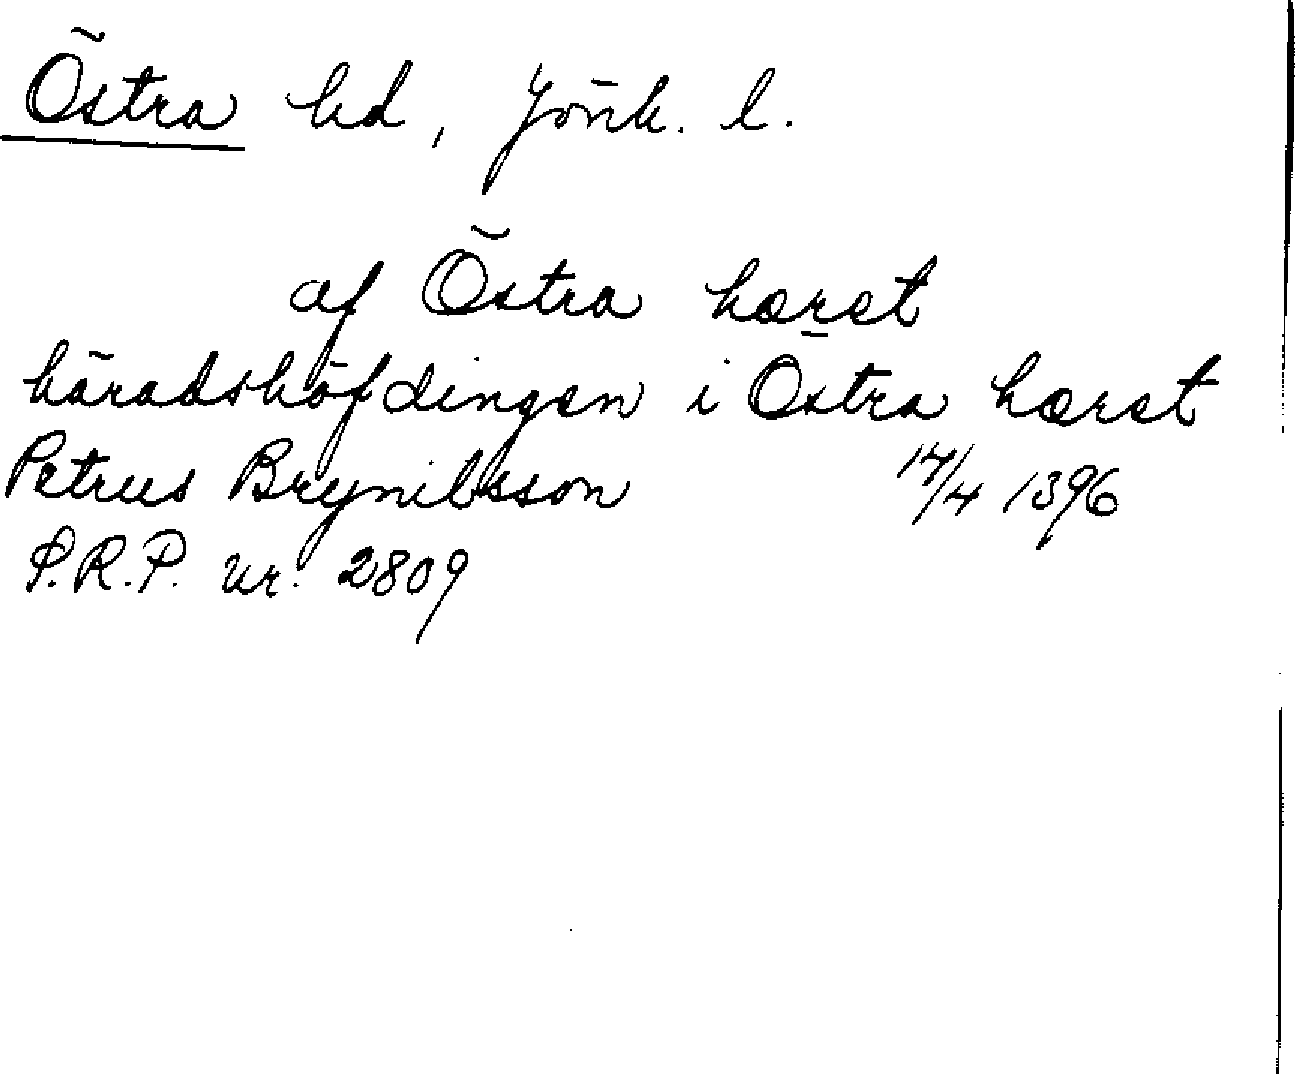 Östra hd, Jönk. l.
af Östra hæret
häradshöfdingen i Östra hæret
Petrus Brynilsson 17/4 1396
S.R.P. nr. 2809